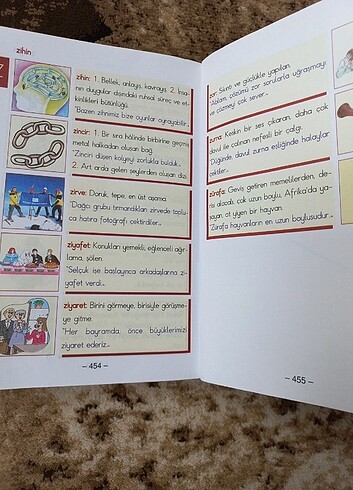 zihin
Z
zihin: 1. Bellek, anlayış, kavrayış. 2. İnsa-
nın duygular dışındaki ruhsal süreç ve et-
kinlikleri bütünlüğü.
"Bazen zihnimiz bize oyunlar oynayabilir."
zincir: 1. Bir sıra hâlinde birbirine geçmiş
metal halkadan oluşan bağ.
"Zinciri düşen kolyeyi zorlukla bulduk."
2. Art arda gelen şeylerden oluşan dizi.
zirve: Doruk, tepe, en üst aşama.
"Dağcı grubu tırmandıkları zirvede toplu-
ca hatıra fotoğrafı çektirdiler."
ziyafet: Konukları yemekli, eğlenceli ağır-
lama, şölen.
"Selçuk işe başlayınca arkadaşlarına zi-
yafet verdi."
ziyaret: Birini görmeye, birisiyle görüşme-
ye gitme.
"Her bayramda, önce büyüklerimizi
ziyaret ederiz."
– 454 –
zor: Sıkıntı ve güçlükle yapılan.
"Ablam, çözümü zor sorularla uğraşmayı
ve çözmeyi çok sever."
zurna: Keskin bir ses çıkaran, daha çok
davul ile çalınan nefesli bir çalgı.
"Düğünde, davul zurna eşliğinde halaylar
çektiler."
zürafa: Geviş getiren memelilerden, de-
risi alacalı, çok uzun boylu, Afrika'da ya-
şayan, ot yiyen bir hayvan.
"Zürafa hayvanların en uzun boylusudur."
– 455 –